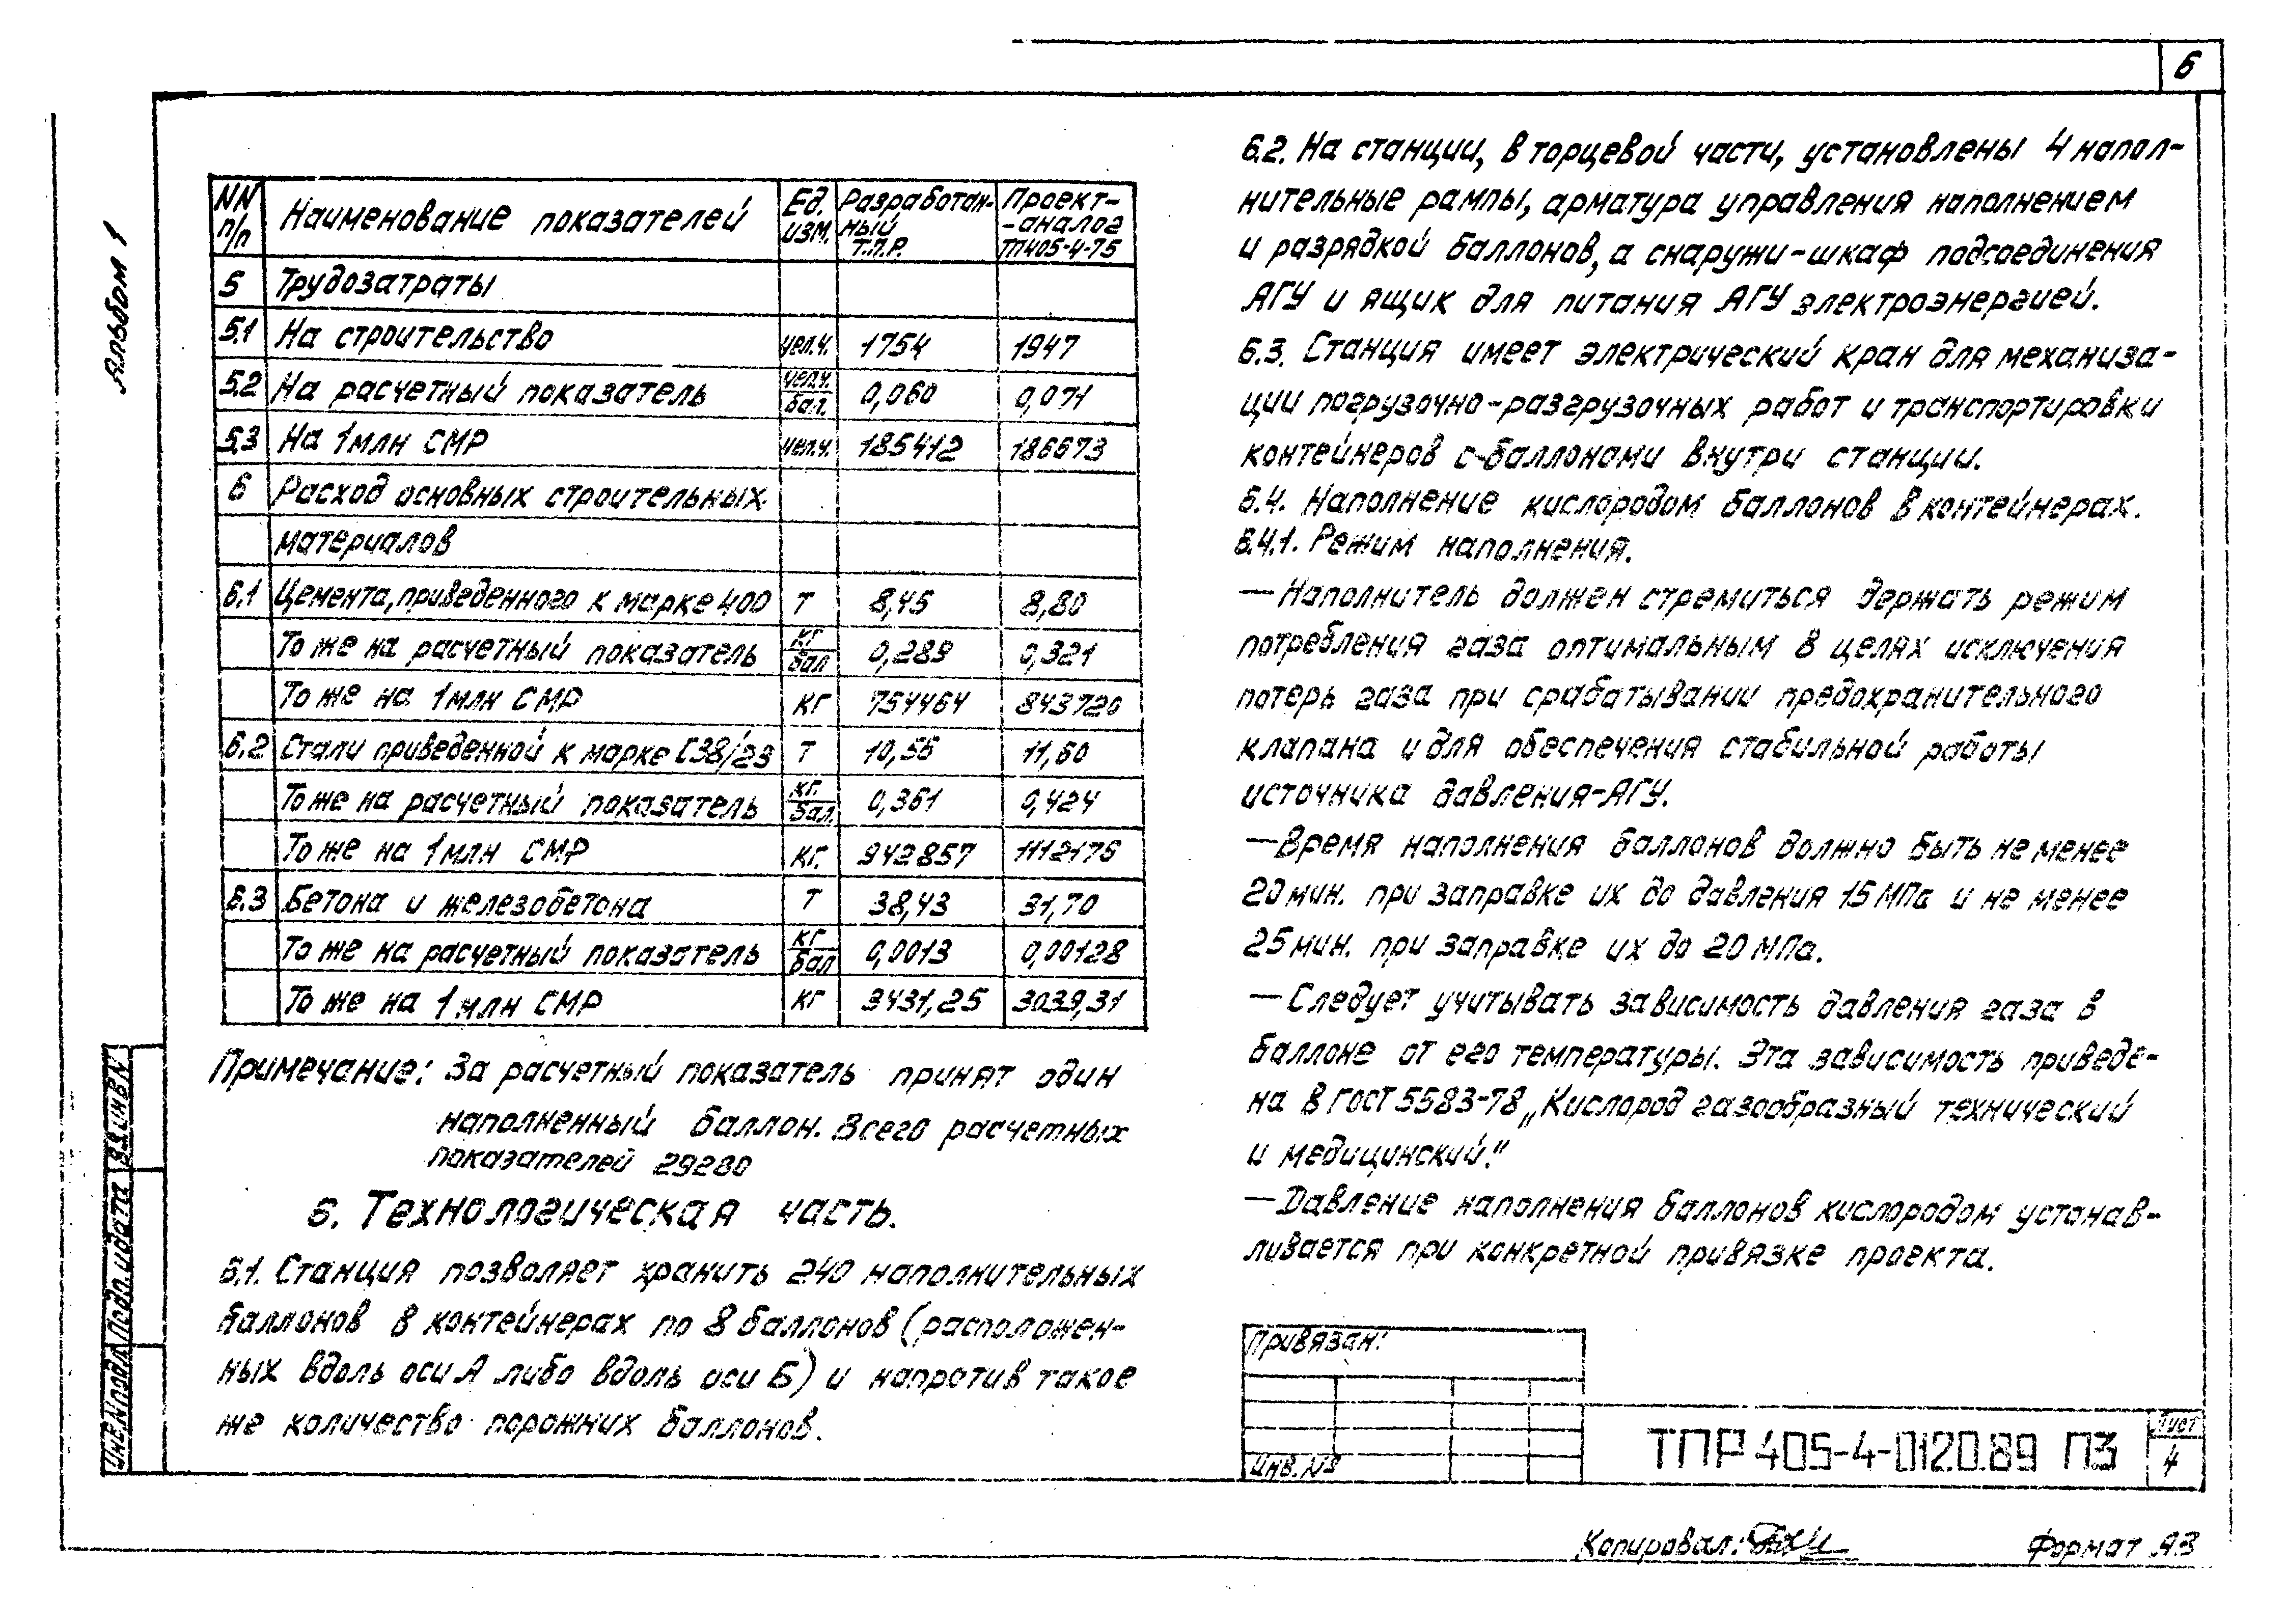 6
Альбом 1
NN п/п Наименование показателей Ед. изм. Разработан-ный Т.П.Р. Проект--аналог ТП405-4-75
5 Трудозатраты
5.1 На строительство чел.ч. 1754 1947
5.2 На расчетный показатель чел.ч./бал. 0,060 0,071
5.3 На 1 млн СМР чел.ч. 185412 186673
6 Расход основных строительных
материалов
6.1 Цемента, приведенного к марке 400 Т 8,45 8,80
То же на расчетный показатель кг/бал 0,289 0,321
То же на 1 млн СМР кг 754464 843720
6.2 Стали приведенной к марке С38/23 Т 10,56 11,60
То же на расчетный показатель кг./бал. 0,361 0,424
То же на 1 млн СМР кг. 942857 1112176
6.3 Бетона и железобетона Т 38,43 31,70
То же на расчетный показатель кг/бал 0,0013 0,00128
То же на 1 млн СМР кг 3431,25 3039,31
Примечание: За расчетный показатель принят один
наполненный баллон. Всего расчетных
показателей 29280
6. Технологическая часть.
6.1. Станция позволяет хранить 240 наполнительных
баллонов в контейнерах по 8 баллонов (расположен-
ных вдоль оси А либо вдоль оси Б) и напротив такое
же количество порожних баллонов.
6.2. На станции, в торцевой части, установлены 4 напол-
нительные рампы, арматура управления наполнением
и разрядкой баллонов, а снаружи-шкаф подсоединения
АГУ и ящик для питания АГУ электроэнергией.
6.3. Станция имеет электрический кран для механиза-
ции погрузочно-разгрузочных работ и транспортировки
контейнеров с баллонами внутри станции.
6.4. Наполнение кислородом баллонов в контейнерах.
6.4.1. Режим наполнения.
— Наполнитель должен стремиться держать режим
потребления газа оптимальным в целях исключения
потерь газа при срабатывании предохранительного
клапана и для обеспечения стабильной работы
источника давления-АГУ.
— Время наполнения баллонов должно быть не менее
20 мин. при заправке их до давления 15 МПа и не менее
25 мин. при заправке их до 20 МПа.
— Следует учитывать зависимость давления газа в
баллоне от его температуры. Эта зависимость приведе-
на в ГОСТ 5583-78 „Кислород газообразный технический
и медицинский."
— Давление наполнения баллонов кислородом устанав-
ливается при конкретной привязке проекта.
Привязан:
Инв.№
ТПР 405-4-0120.89 ПЗ
Лист
4
Инв.№подл. Подп. и дата Вз.инв.№
Копировал:
Формат А3